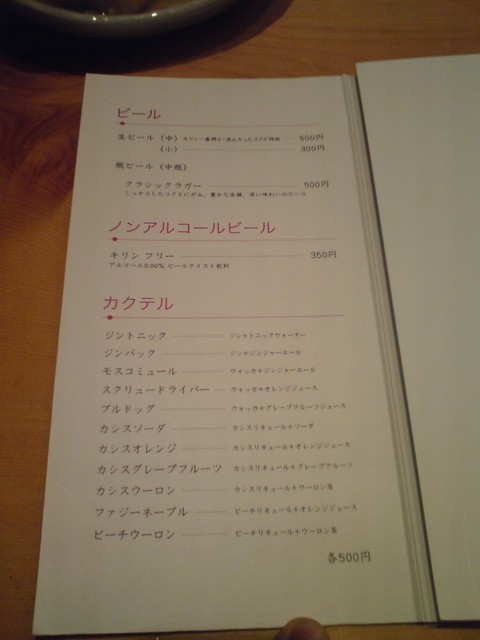 ビール
生ビール（中） キリン一番搾り・澄みきったコクが特徴 500円
（小） 300円
瓶ビール（中瓶）
クラシックラガー 500円
しっかりしたコクとにがみ、豊かな余韻、深い味わいのビール
ノンアルコールビール
キリン フリー 350円
アルコール0.00% ビールテイスト飲料
カクテル
ジントニック ジン+トニックウォーター
ジンバック ジン+ジンジャーエール
モスコミュール ウォッカ+ジンジャーエール
スクリュードライバー ウォッカ+オレンジジュース
ブルドッグ ウォッカ+グレープフルーツジュース
カシスソーダ カシスリキュール+ソーダ
カシスオレンジ カシスリキュール+オレンジジュース
カシスグレープフルーツ カシスリキュール+グレープフルーツ
カシスウーロン カシスリキュール+ウーロン茶
ファジーネーブル ピーチリキュール+オレンジジュース
ピーチウーロン ピーチリキュール+ウーロン茶
各500円